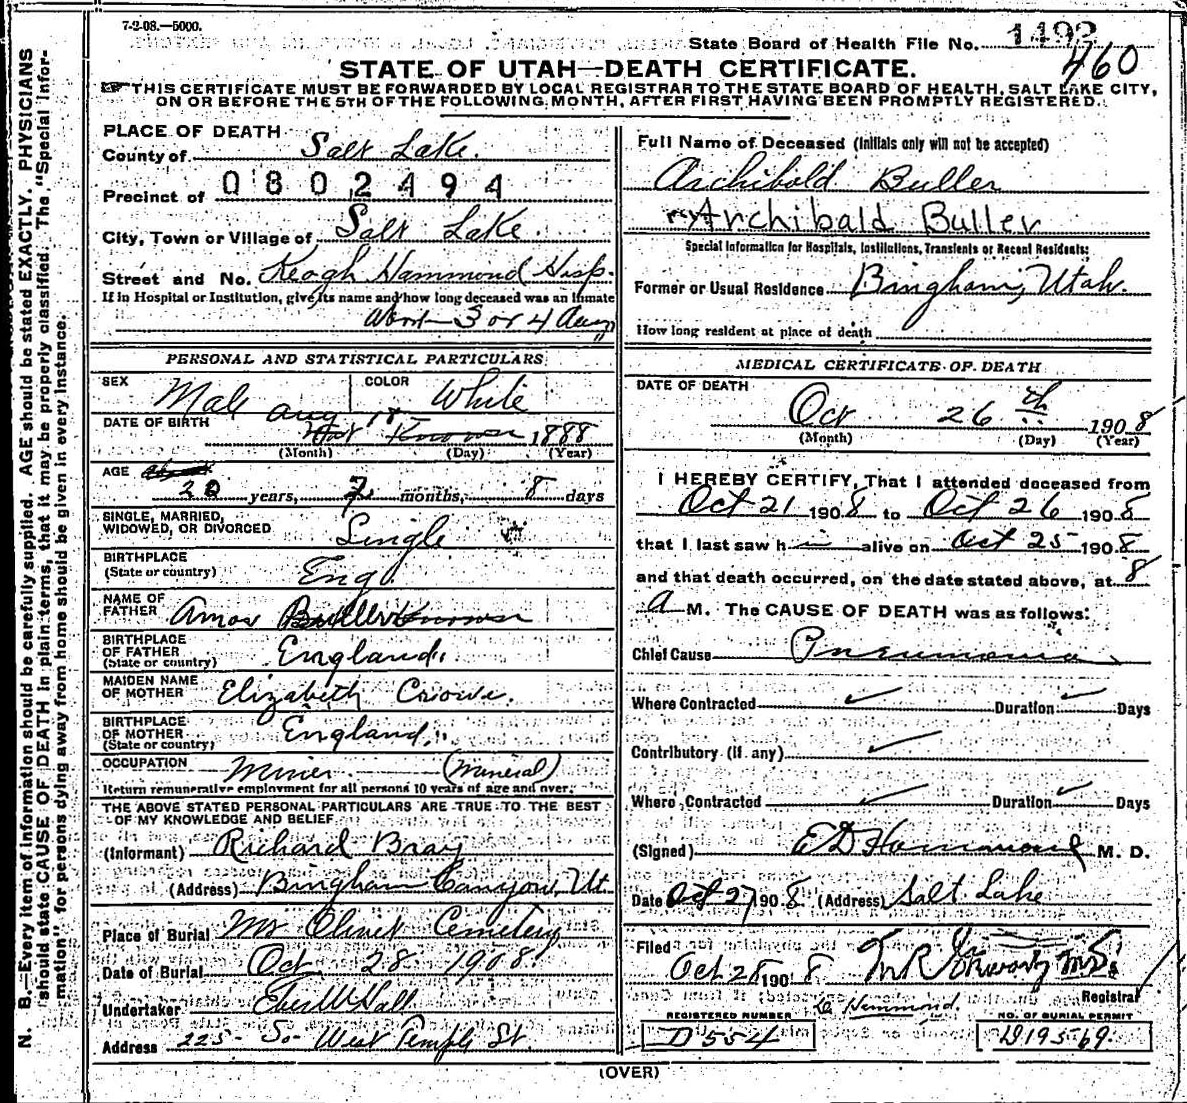 7-2-08.—5000.
State Board of Health File No. 1492
460
STATE OF UTAH—DEATH CERTIFICATE.
THIS CERTIFICATE MUST BE FORWARDED BY LOCAL REGISTRAR TO THE STATE BOARD OF HEALTH, SALT LAKE CITY,
ON OR BEFORE THE 5TH OF THE FOLLOWING MONTH, AFTER FIRST HAVING BEEN PROMPTLY REGISTERED.
N. B.—Every item of information should be carefully supplied. AGE should be stated EXACTLY. PHYSICIANS
should state CAUSE OF DEATH in plain terms, that it may be properly classified. The "Special Infor-
mation" for persons dying away from home should be given in every instance.
PLACE OF DEATH
County of Salt Lake.
Precinct of 0802494
City, Town or Village of Salt Lake.
Street and No. Keogh Hammond Hosp.
If in Hospital or Institution, give its name and how long deceased was an inmate
3 or 4 days
PERSONAL AND STATISTICAL PARTICULARS
SEX Male COLOR White
DATE OF BIRTH Aug 18 Not Known 1888
(Month) (Day) (Year)
AGE about
20 years, 2 months, 8 days
SINGLE, MARRIED,
WIDOWED, OR DIVORCED Single
BIRTHPLACE
(State or country) Eng.
NAME OF
FATHER Amos Buller Known
BIRTHPLACE
OF FATHER
(State or country) England.
MAIDEN NAME
OF MOTHER Elizabeth Crowe.
BIRTHPLACE
OF MOTHER
(State or country) England.
OCCUPATION Miner (Mineral)
Return remunerative employment for all persons 10 years of age and over.
THE ABOVE STATED PERSONAL PARTICULARS ARE TRUE TO THE BEST
OF MY KNOWLEDGE AND BELIEF
(Informant) Richard Bray
(Address) Bingham Canyon, Ut.
Place of Burial Mt Olivet Cemetery
Date of Burial Oct 28 1908
Undertaker Eber W Hall
Address 225 So West Temple St
Full Name of Deceased (Initials only will not be accepted)
Archibold Buller
Archibald Buller
Special Information for Hospitals, Institutions, Transients or Recent Residents:
Former or Usual Residence Bingham, Utah.
How long resident at place of death
MEDICAL CERTIFICATE OF DEATH
DATE OF DEATH
Oct 26th 1908
(Month) (Day) (Year)
I HEREBY CERTIFY, That I attended deceased from
Oct 21 1908 to Oct 26 1908
that I last saw him alive on Oct 25 1908
and that death occurred, on the date stated above, at 8
A M. The CAUSE OF DEATH was as follows:
Chief Cause Pneumonia
Where Contracted ✓ Duration ✓ Days
Contributory (if any) ✓
Where Contracted ✓ Duration ✓ Days
(Signed) E D Hammond M. D.
Date Oct 27 1908 (Address) Salt Lake
Filed
Oct 28 1908 M.D.
Registrar
Hammond.
REGISTERED NUMBER
D554
NO. OF BURIAL PERMIT
D19569
(OVER)